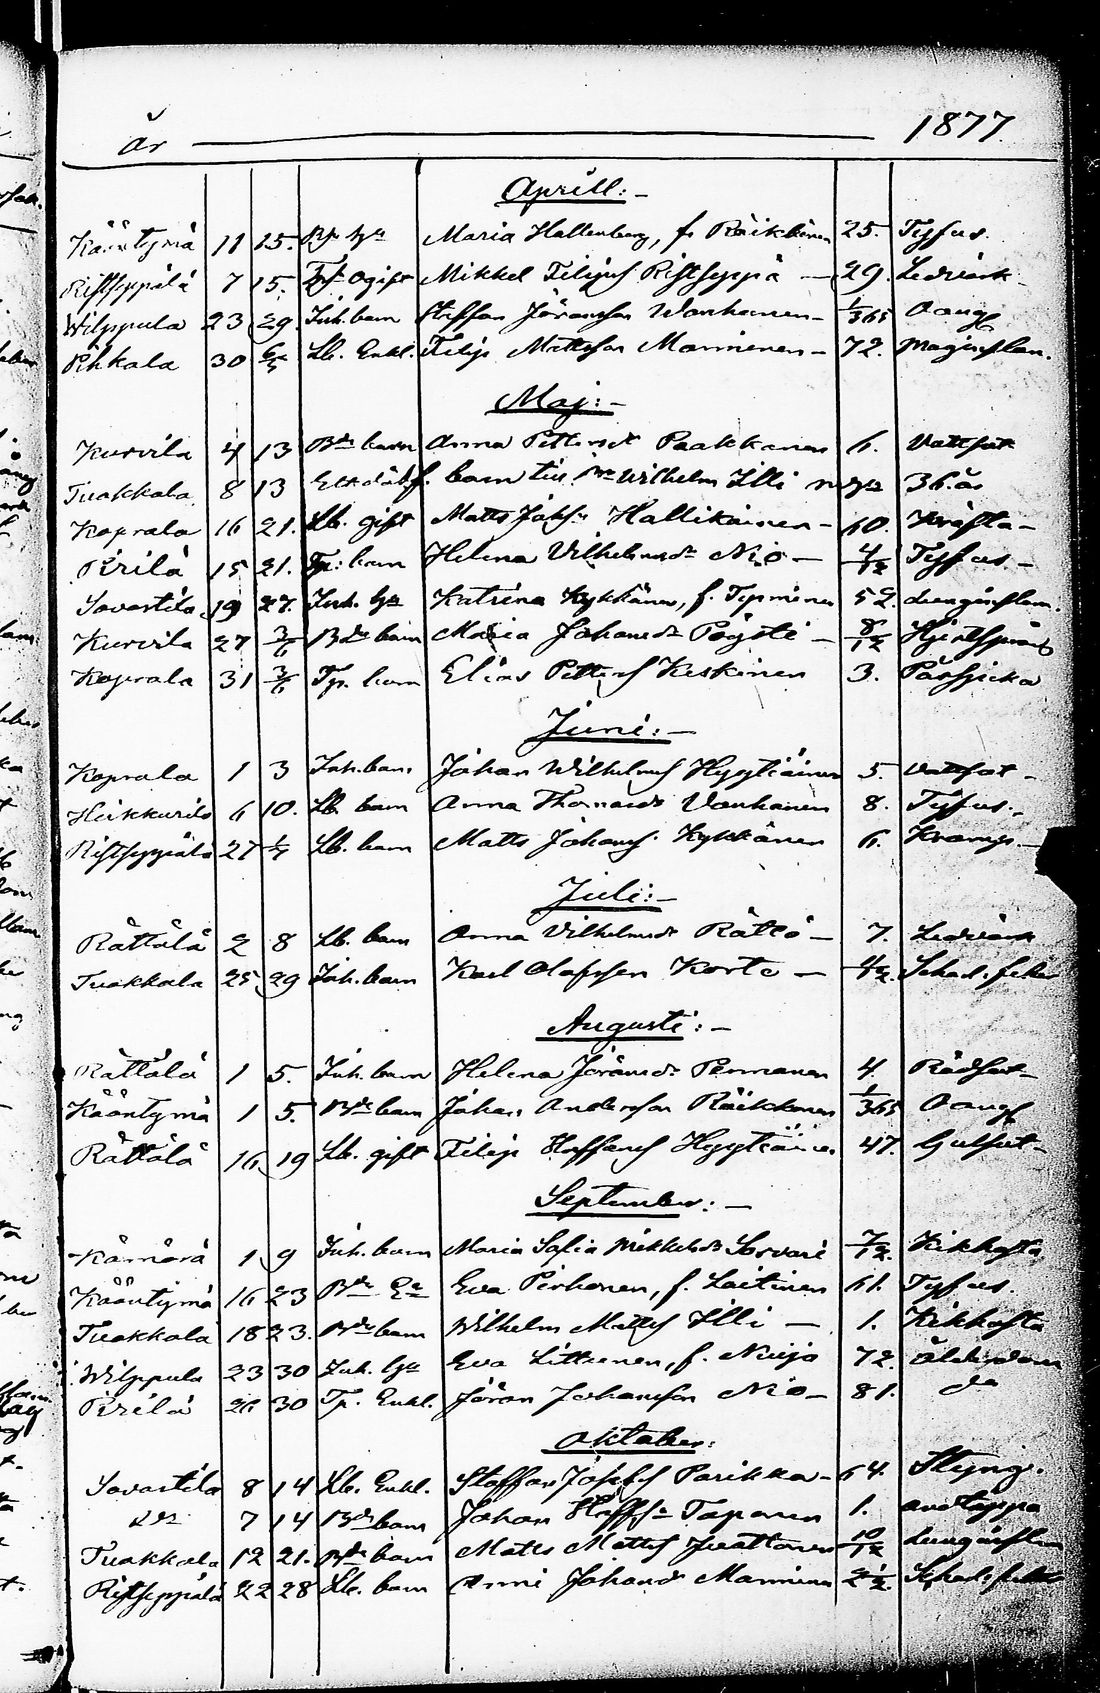 år 1877.
Aprill:-
Kääntymä 11 15. Maria Hallenberg, f. Räikkönen 25. Tyfus.
Ristseppälä 7 15. ogift Mikkel Filipsf Ristseppä - 29. Ledvärk
Wilppula 23 29. Inh. barn Staffan Jöransson Wanhanen - 1/365 Oang
Pihkala 30 Lb. Enkl. Filip Mattsson Manninen - 72. Maginflam.
Maj:-
Kurvila 4 13 Bde barn Anna Pettersdr Paakkanen 6. Vattsot
Tuokkola 8 13 Ett dödf. barn till Wilhelm Illi 36. år
Koprala 16 21. Lb. gift Matts Johs. Hallikainen - 60. Kräfta -
Pirilä 15 21. Tp. barn Helena Vilhelmsdr Niö - 4/12 Tyfus. -
Savastila 19 27. Inh. Katrina Kykkänen, f. 52. Lunginflam.
Kurvila 27 3/6 Bde barn Maria Johansdr Pöysti - 8/12 Hjertspräng
Koprala 31 3/6 Tp. barn Elias Pettersf Keskinen 3. Påssjuka
Juni:-
Koprala 1 3 Inh. barn Johan Wilhelmsf Hyytiäinen 5. Vattsot -
Heikkurila 6 10. Lb. barn Anna Thomasdr Vanhanen 8. Tyfus. -
Ristseppälä 27 1/7 Lb. barn Matts Johansf Kykkänen 6. Kramp. -
Juli:-
Rättälä 2 8 Lb. barn Anna Vilhelmsdr Rättö - 7. Ledvärk
Tuokkola 25 29 Inh. barn Karl Olofsson Korte - Schal. feber
Augusti:-
Rättälä 1 5. Inh. barn Helena Jöransdr Penmanen 4. Rödsot -
Kääntymä 1 5. Bde barn Johan Andersson Räikkönen 1/365 Oang
Rättälä 16 19 Lb. gift Filip Staffansf Hyytiäinen 47. Gulsot -
September:-
Kämärä 1 9 Inh. barn Maria Sofia Mikkelsdr Sorvari 7/12. Kikhosta
Kääntymä 16 23 Bde Ea Eva Pirhonen, f. Laitinen 61. Tyfus.
Tuokkola 18 23. Bde barn Wilhelm Mattsf Illi - 1. Kikhosta
Wilppula 23 30 Inh. Eva Littunen, f. Nuija 72. Ålderdom
Pirilä 26 30 Tp. Enkl. Jöran Johansson Niö - 81. do
Oktober:
Savastila 8 14 Lb. Enkl. Staffan Josefsf Parikka - 64. Styng.
7 14 Bde barn Johan Staffs Taponen 1. andtäppa
Tuokkola 12 21. Bde barn Matts Mattsf 10/12 Lunginflam
Ristseppälä 22 28 Lb. barn Anni Johansdr Manninen 2 1/2. Schal. feber